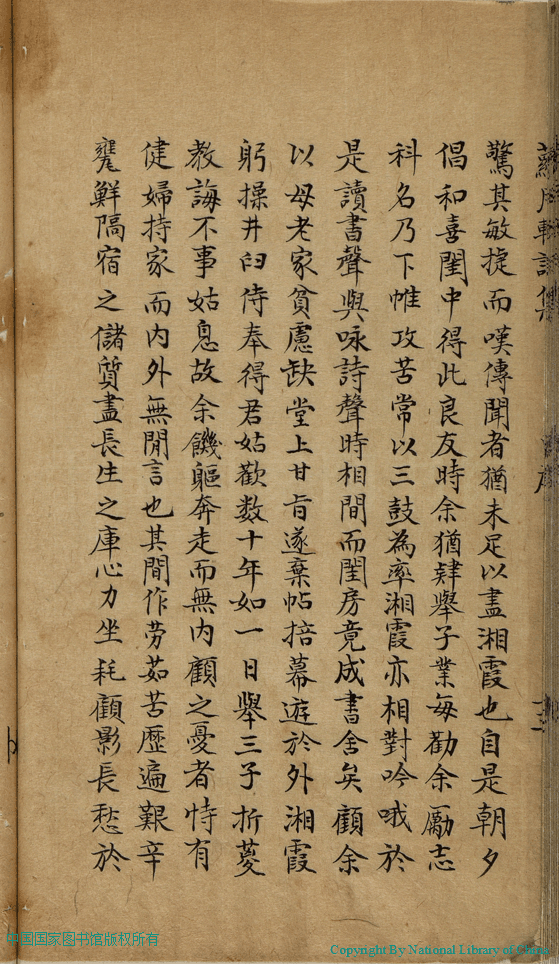 驚其敏捷而嘆傳聞者猶未足以盡湘霞也自是朝夕
倡和喜閨中得此良友時余猶肄舉子業每勸余勵志
科名乃下帷攻苦常以三鼓為率湘霞亦相對吟哦於
是讀書聲與咏詩聲時相間而閨房竟成書舍矣顧余
以母老家貧慮缺堂上甘旨遂棄帖掊幕遊於外湘霞
躬操井臼侍奉得君姑歡数十年如一日舉三子折葼
教誨不事姑息故余饑軀奔走而無内顧之憂者恃有
健婦持家而内外無閒言也其間作劳茹苦歷遍艱辛
甕鮮隔宿之儲質盡長生之庫心力坐耗顧影長愁於
中国国家图书馆版权所有
Copyright By National Library of China